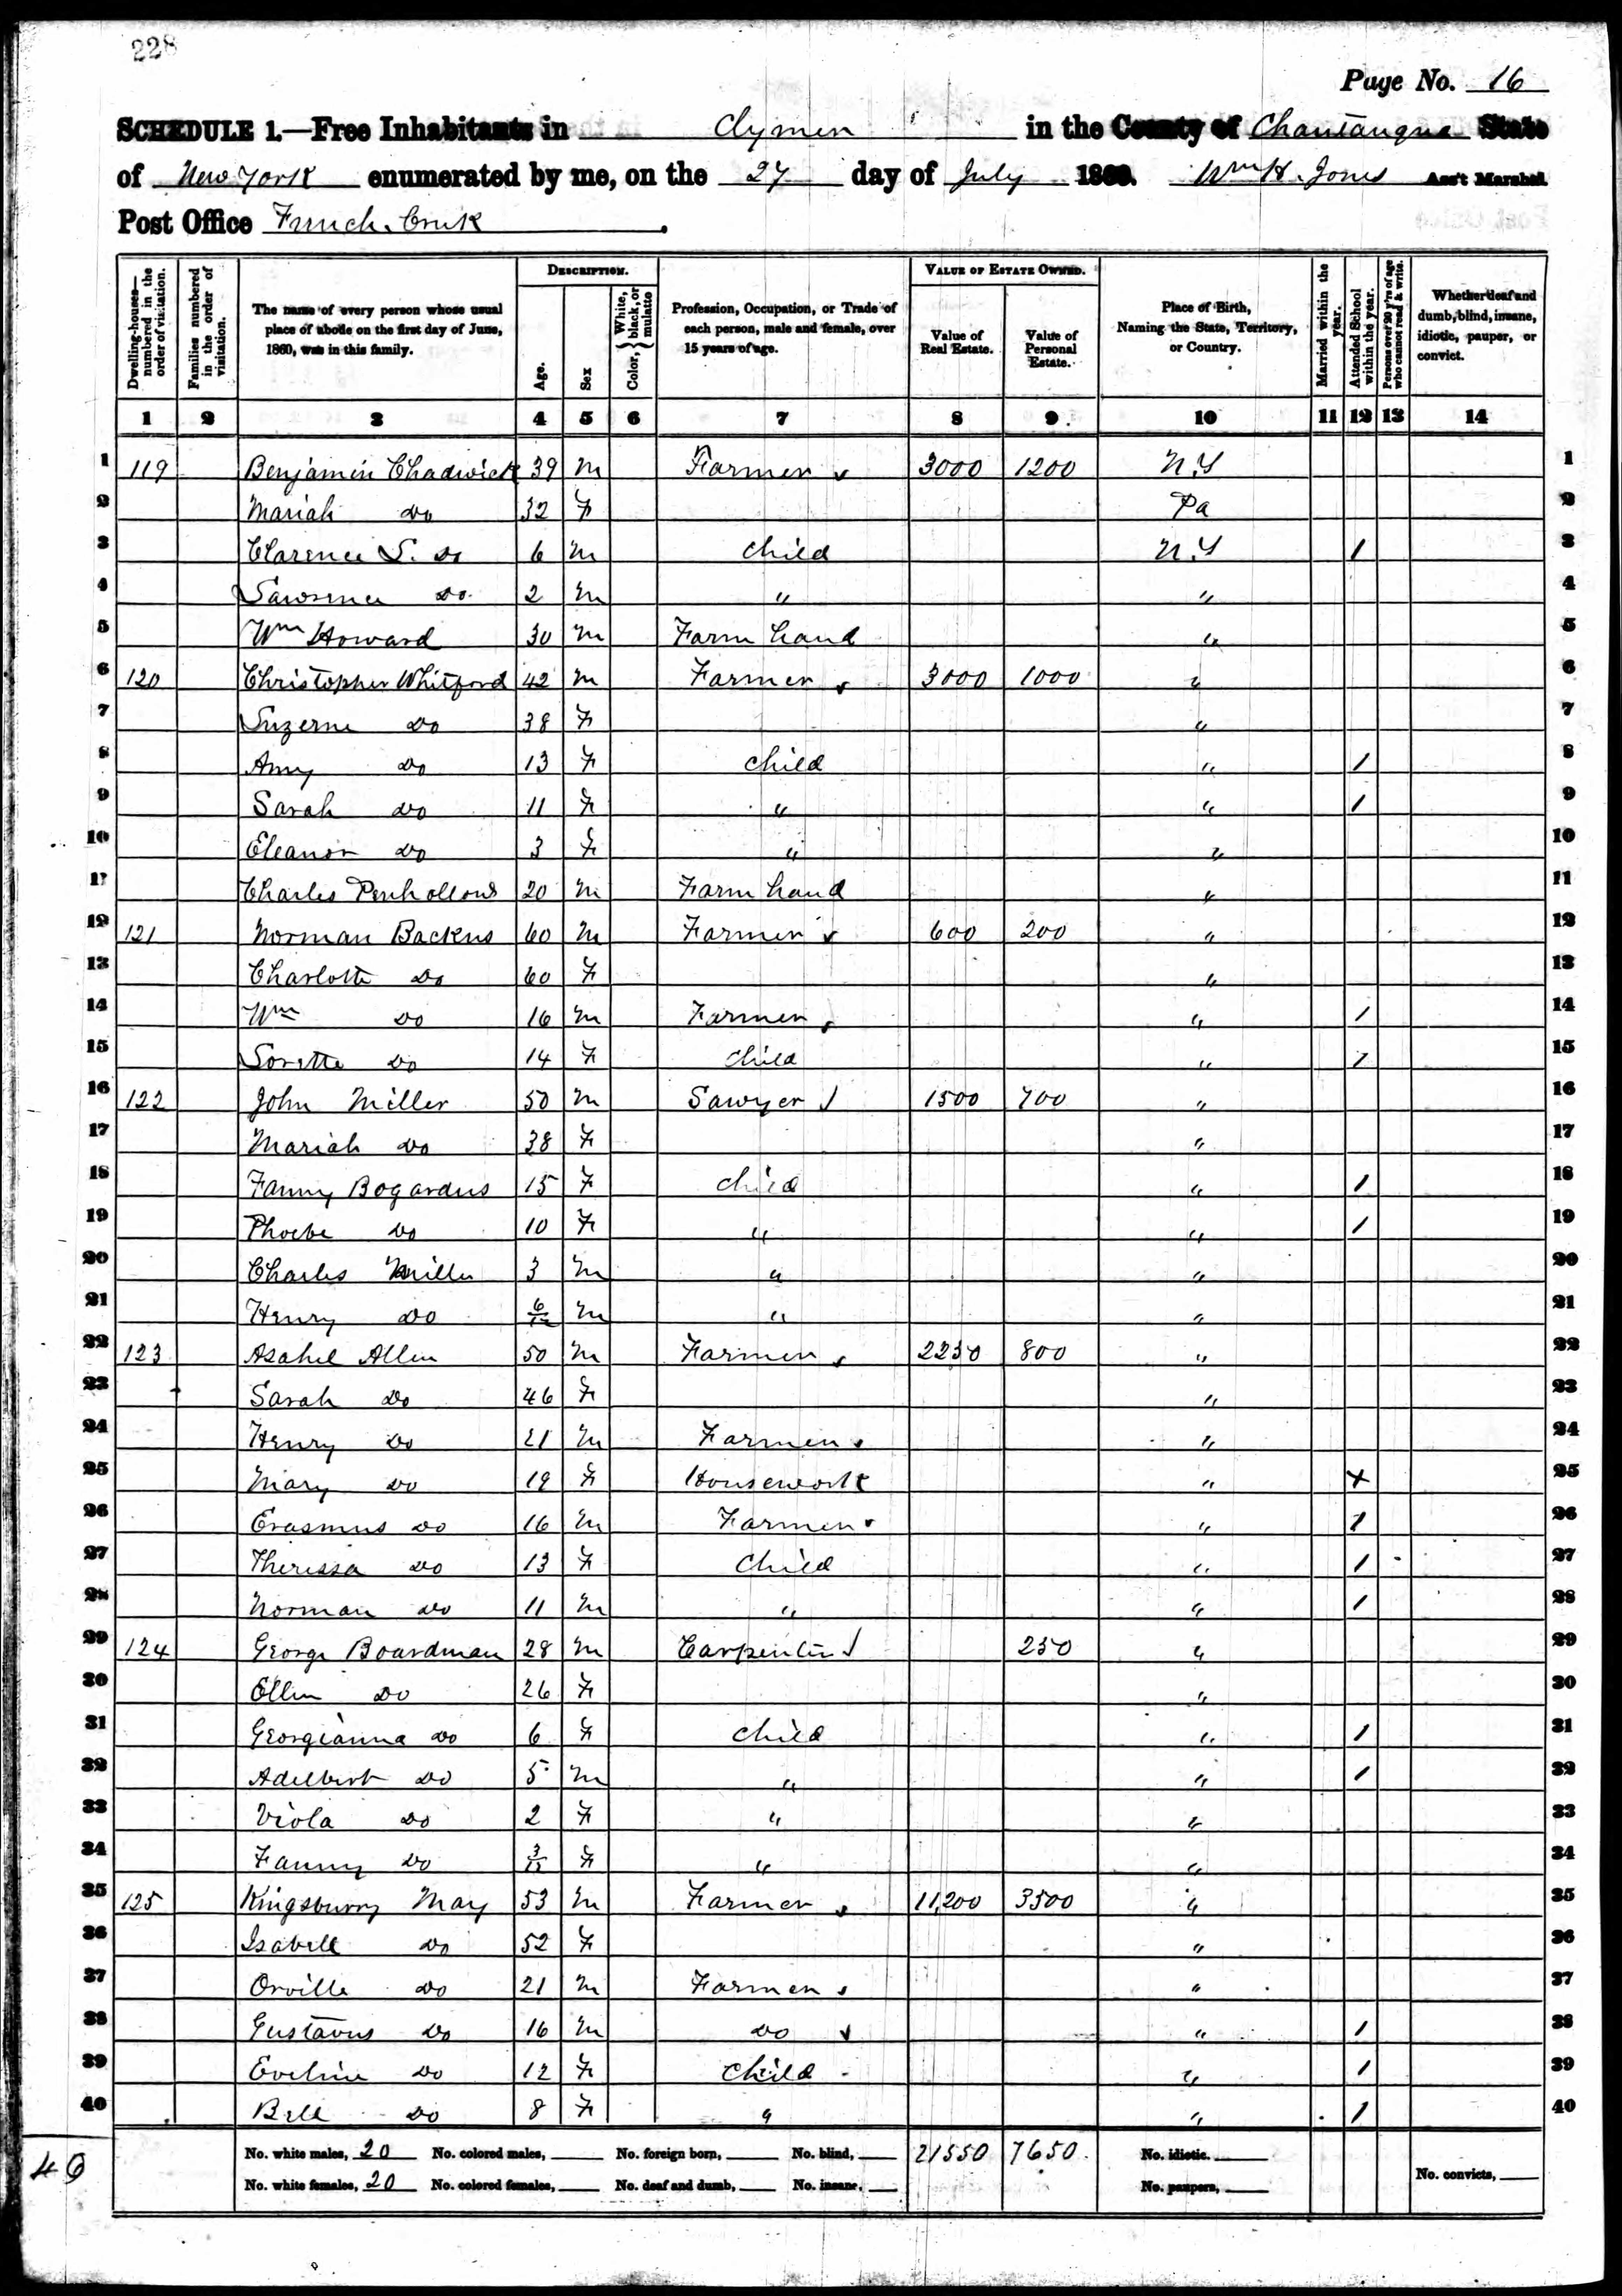 228
Page No. 16
SCHEDULE 1.—Free Inhabitants in Clymer in the County of Chautauqua State
of New York enumerated by me, on the 27 day of July 1860. Wm H. Jones Ass't Marshal.
Post Office French Creek.
DESCRIPTION. VALUE OF ESTATE OWNED.
Dwelling-houses—numbered in the order of visitation. Families numbered in the order of visitation. The name of every person whose usual place of abode on the first day of June, 1860, was in this family. Age. Sex Color, {White, black, or mulatto Profession, Occupation, or Trade of each person, male and female, over 15 years of age. Value of Real Estate. Value of Personal Estate. Place of Birth, Naming the State, Territory, or Country. Married within the year. Attended School within the year. Persons over 20 y'rs of age who cannot read & write. Whether deaf and dumb, blind, insane, idiotic, pauper, or convict.
1 2 3 4 5 6 7 8 9 10 11 12 13 14
1 119 Benjamin Chadwick 39 M Farmer 3000 1200 N.Y 1
2 Mariah Do 32 F Pa 2
3 Clarence L. Do 6 M Child N.Y / 3
4 Lawrence Do 2 M " " 4
5 Wm Howard 30 M Farm hand " 5
6 120 Christopher Whitford 42 M Farmer 3000 1000 " 6
7 Luzerne Do 38 F " 7
8 Amy Do 13 F Child " / 8
9 Sarah Do 11 F " " / 9
10 Eleanor Do 3 F " " 10
11 Charles Penhollow 20 M Farm hand " 11
12 121 Norman Backus 60 M Farmer 600 200 " 12
13 Charlotte Do 60 F " 13
14 Wm Do 16 M Farmer " / 14
15 Lorette Do 14 F Child " / 15
16 122 John Miller 50 M Sawyer 1500 700 " 16
17 Mariah Do 38 F " 17
18 Fanny Bogardus 15 F Child " / 18
19 Phoebe Do 10 F " " / 19
20 Charles Miller 3 M " " 20
21 Henry Do 6/12 M " " 21
22 123 Asahel Allen 50 M Farmer 2250 800 " 22
23 Sarah Do 46 F " 23
24 Henry Do 21 M Farmer " 24
25 Mary Do 19 F Housework " + 25
26 Erasmus Do 16 M Farmer " / 26
27 Theressa Do 13 F Child " / 27
28 Norman Do 11 M " " / 28
29 124 George Boardman 28 M Carpenter 250 " 29
30 Ellen Do 26 F " 30
31 Georgianna Do 6 F Child " / 31
32 Adelbert Do 5 M " " / 32
33 Viola Do 2 F " " 33
34 Fanny Do 3/12 F " " 34
35 125 Kingsburry May 53 M Farmer 11,200 3500 " 35
36 Isabell Do 52 F " 36
37 Orville Do 21 M Farmer " 37
38 Gustavus Do 16 M Do " / 38
39 Eveline Do 12 F Child " / 39
40 Bell Do 8 F " " / 40
No. white males, 20 No. colored males, No. foreign born, No. blind, 21550 7650 No. idiotic.
40 No. white females, 20 No. colored females, No. deaf and dumb, No. insane, No. paupers, No. convicts,